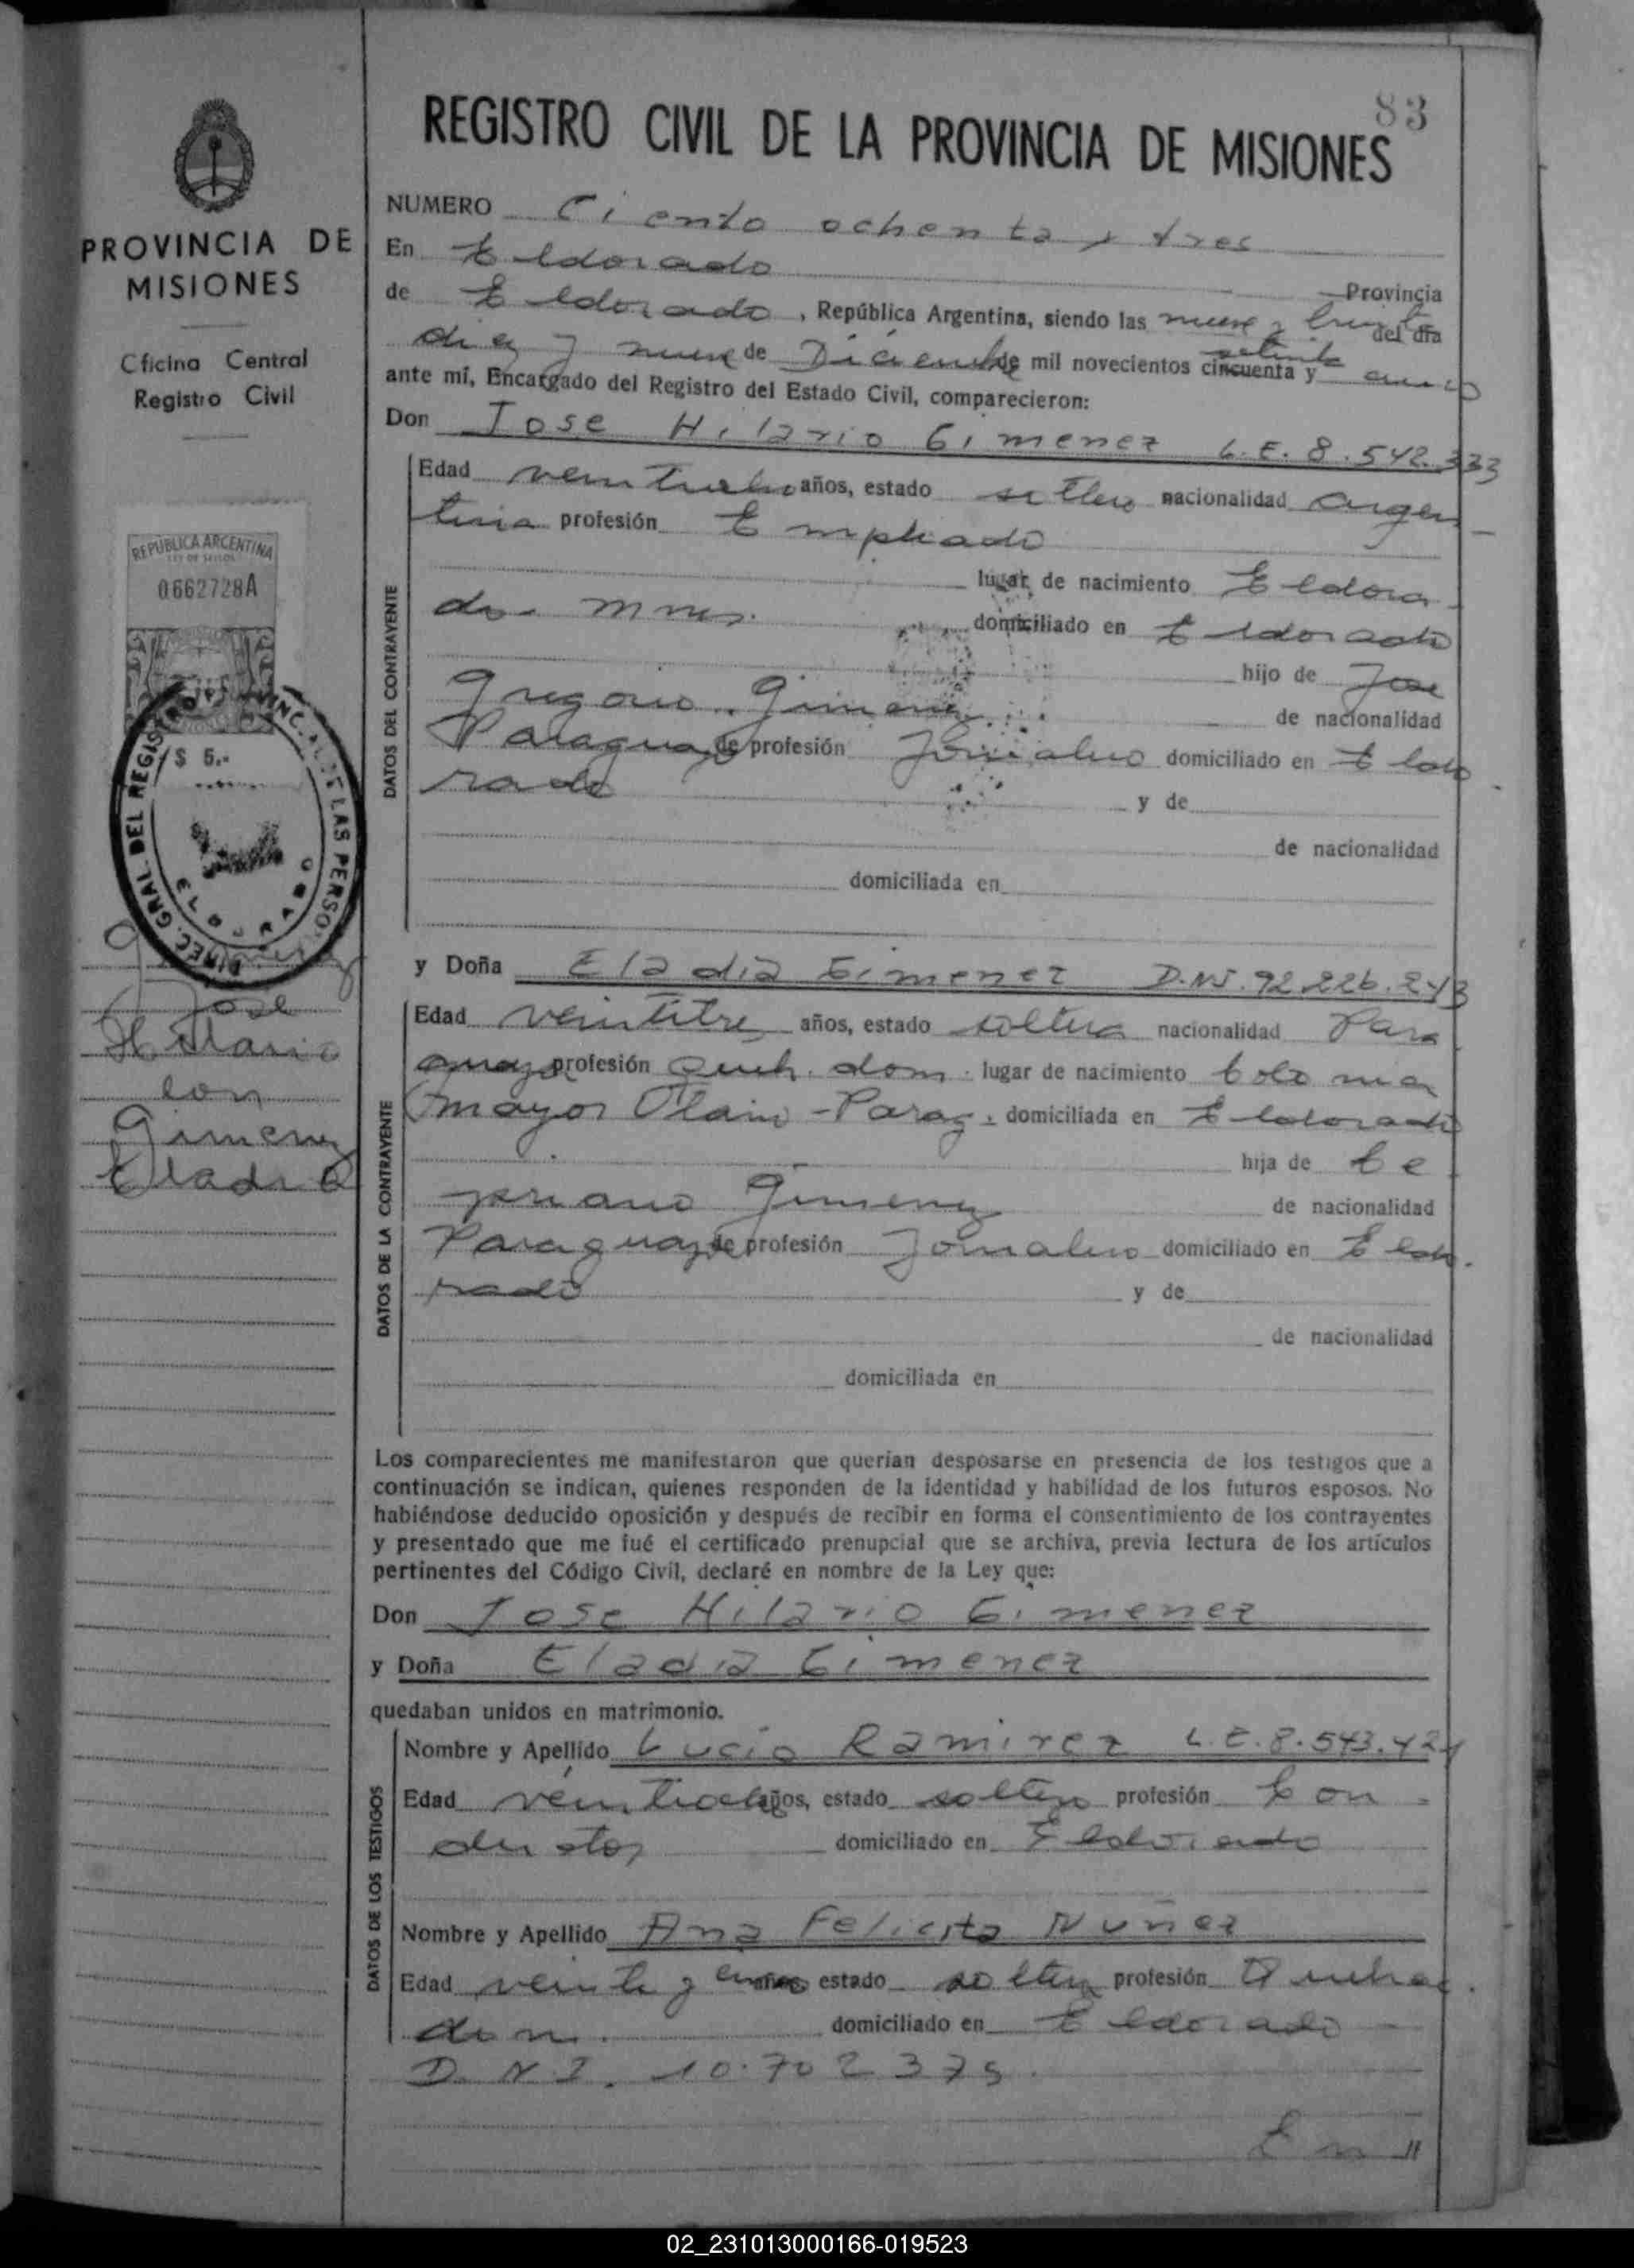 83
REGISTRO CIVIL DE LA PROVINCIA DE MISIONES
PROVINCIA DE
MISIONES
Oficina Central
Registro Civil
REPUBLICA ARGENTINA
LEY DE SELLOS
0662728A
$ 5.-
DIREC. GRAL. DEL REGISTRO PROVINC. DE LAS PERSONAS
ELDORADO
Gimenez
Jose
Hilario
con
Gimenez
Eladia
NUMERO Ciento ochenta y tres
En Eldorado
Provincia
de Eldorado, República Argentina, siendo las nueve y treinta del día
diez y nueve de Diciembre de mil novecientos cincuenta y setenta cinco
ante mí, Encargado del Registro del Estado Civil, comparecieron:
Don Jose Hilario Gimenez L.E. 8.542.333
DATOS DEL CONTRAYENTE
Edad veintiocho años, estado soltero nacionalidad argen-
tina profesión Empleado
lugar de nacimiento Eldora-
do - Mnes. domiciliado en Eldorado
hijo de Jose
Gregorio Gimenez de nacionalidad
Paraguayo de profesión Jornalero domiciliado en Eldo
rado y de
de nacionalidad
domiciliada en
y Doña Eladia Gimenez D.NI. 92.226.243
DATOS DE LA CONTRAYENTE
Edad veintitres años, estado soltera nacionalidad Para
guaya profesión Queh. dom. lugar de nacimiento Colonia
mayor Otaño - Parag. domiciliada en Eldorado
hija de Ce
priano Gimenez de nacionalidad
Paraguayo de profesión Jornalero domiciliado en Eldo.
rado y de
de nacionalidad
domiciliada en
Los comparecientes me manifestaron que querían desposarse en presencia de los testigos que a
continuación se indican, quienes responden de la identidad y habilidad de los futuros esposos. No
habiéndose deducido oposición y después de recibir en forma el consentimiento de los contrayentes
y presentado que me fué el certificado prenupcial que se archiva, previa lectura de los artículos
pertinentes del Código Civil, declaré en nombre de la Ley que:
Don Jose Hilario Gimenez
y Doña Eladia Gimenez
quedaban unidos en matrimonio.
DATOS DE LOS TESTIGOS
Nombre y Apellido Lucio Ramirez L.E. 8.543.421
Edad veintiocho años, estado soltero profesión Con-
ductor domiciliado en Eldorado
Nombre y Apellido Ana Felicita Nuñez
Edad veinte y cinco años estado soltera profesión Quehac.
dom. domiciliado en Eldorado -
D.N.I. 10.702375.
En "
02_231013000166-019523